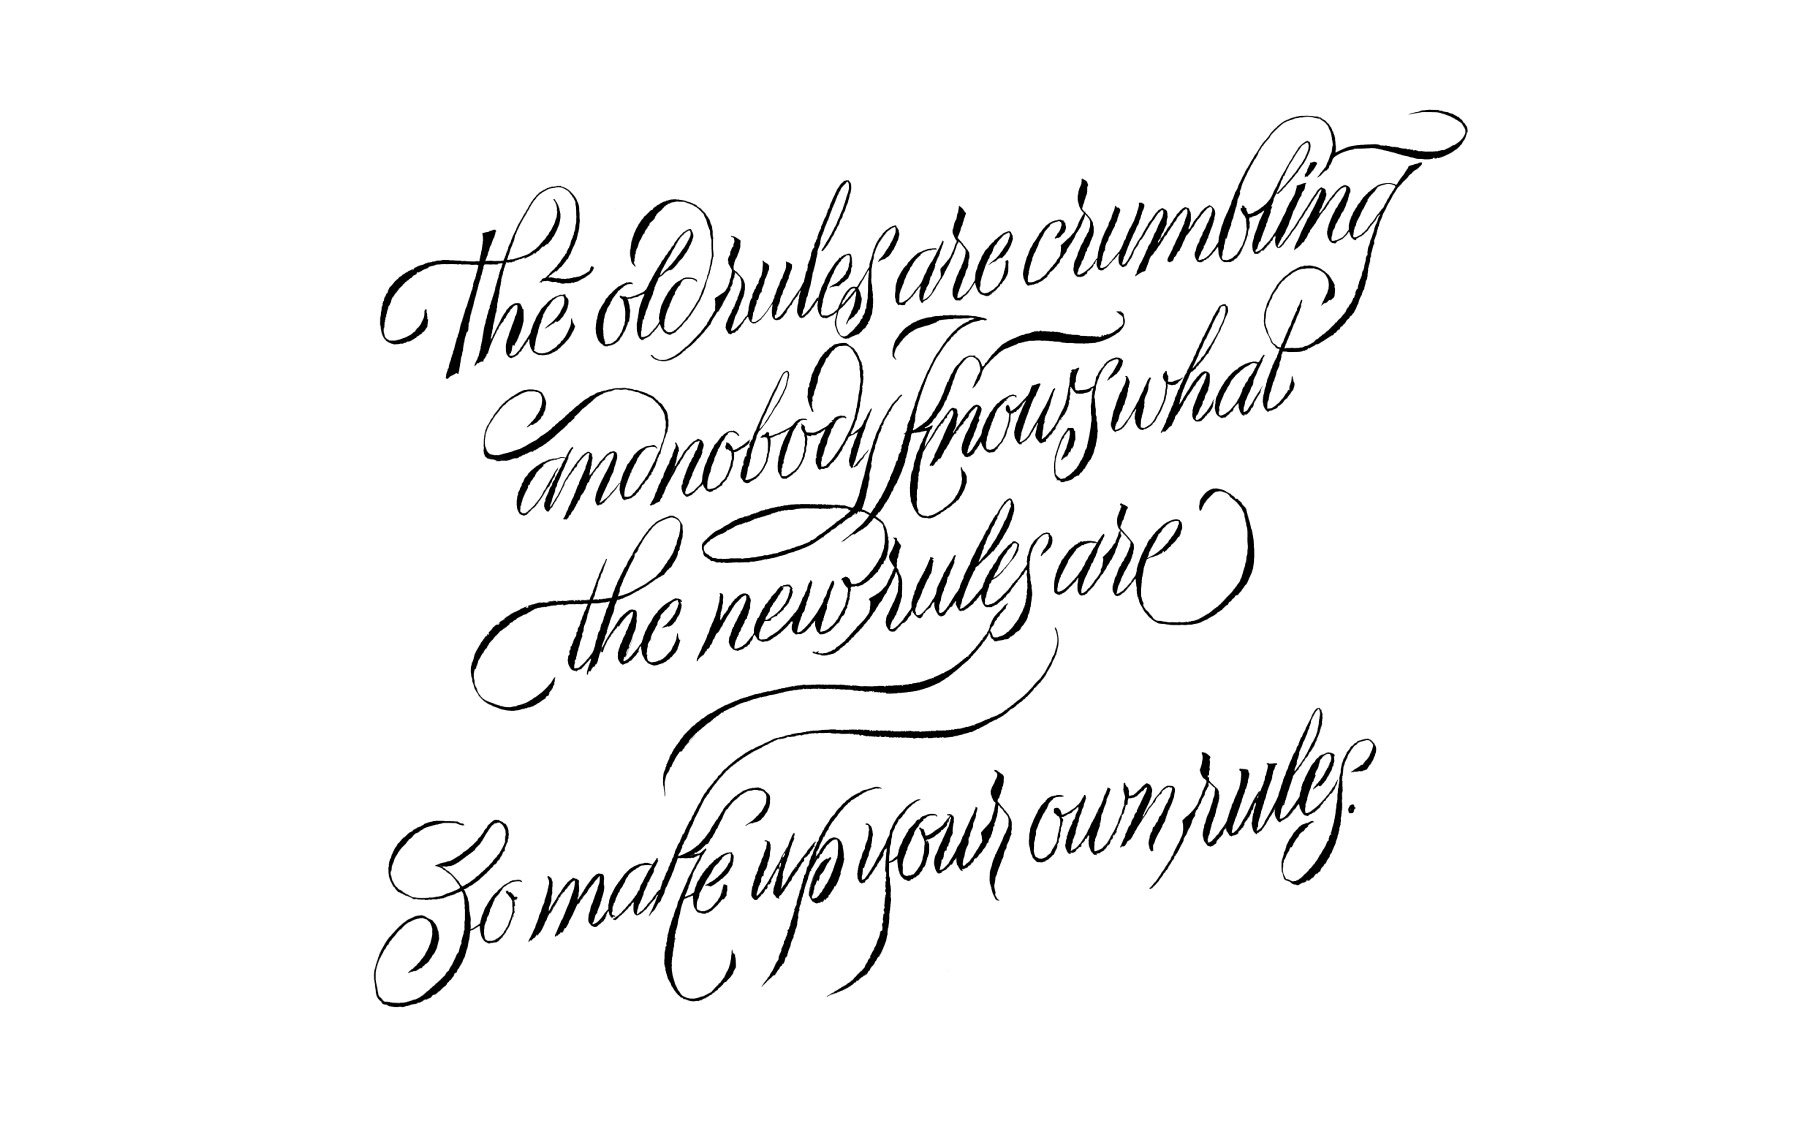 The old rules are crumbling
and nobody knows what
the new rules are
So make up your own rules.